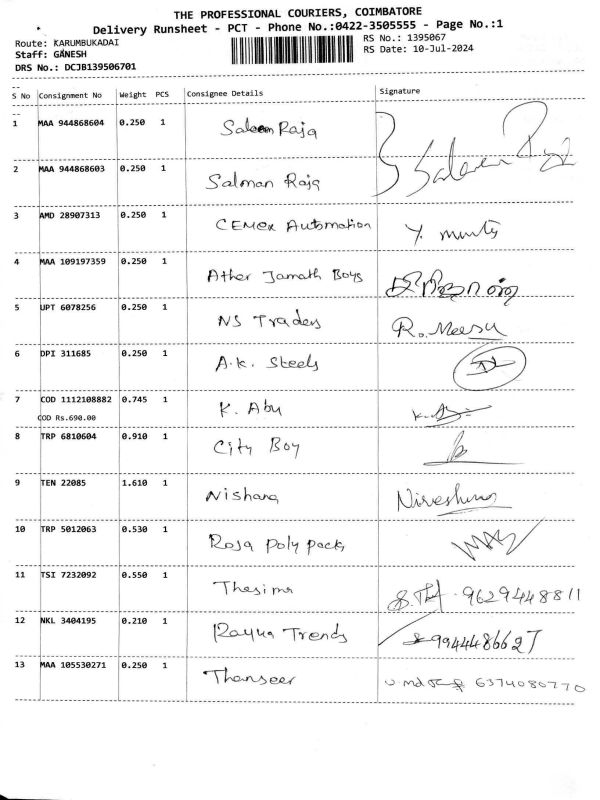 THE PROFESSIONAL COURIERS, COIMBATORE
Delivery Runsheet - PCT - Phone No.:0422-3505555 - Page No.:1
Route: KARUMBUKADAI
Staff: GANESH
DRS No.: DCJB139506701
RS No.: 1395067
RS Date: 10-Jul-2024
S No Consignment No Weight PCS Consignee Details Signature
1 MAA 944868604 0.250 1 Saleem Raja
2 MAA 944868603 0.250 1 Salman Raja
3 AMD 28907313 0.250 1 CEMEX Automation
4 MAA 109197359 0.250 1 Ather Jamath Boys
5 UPT 6078256 0.250 1 NS Traders R. Meesu
6 DPI 311685 0.250 1 A.K. Steels
7 COD 1112108882 0.745 1 K. Abu
COD Rs.690.00
8 TRP 6810604 0.910 1 City Boy
9 TEN 22085 1.610 1 Nishana
10 TRP 5012063 0.530 1 Roja Poly packs
11 TSI 7232092 0.550 1 Thesima 9629448811
12 NKL 3404195 0.210 1 Trends 9944486627
13 MAA 105530271 0.250 1 Thanseer 6374080770